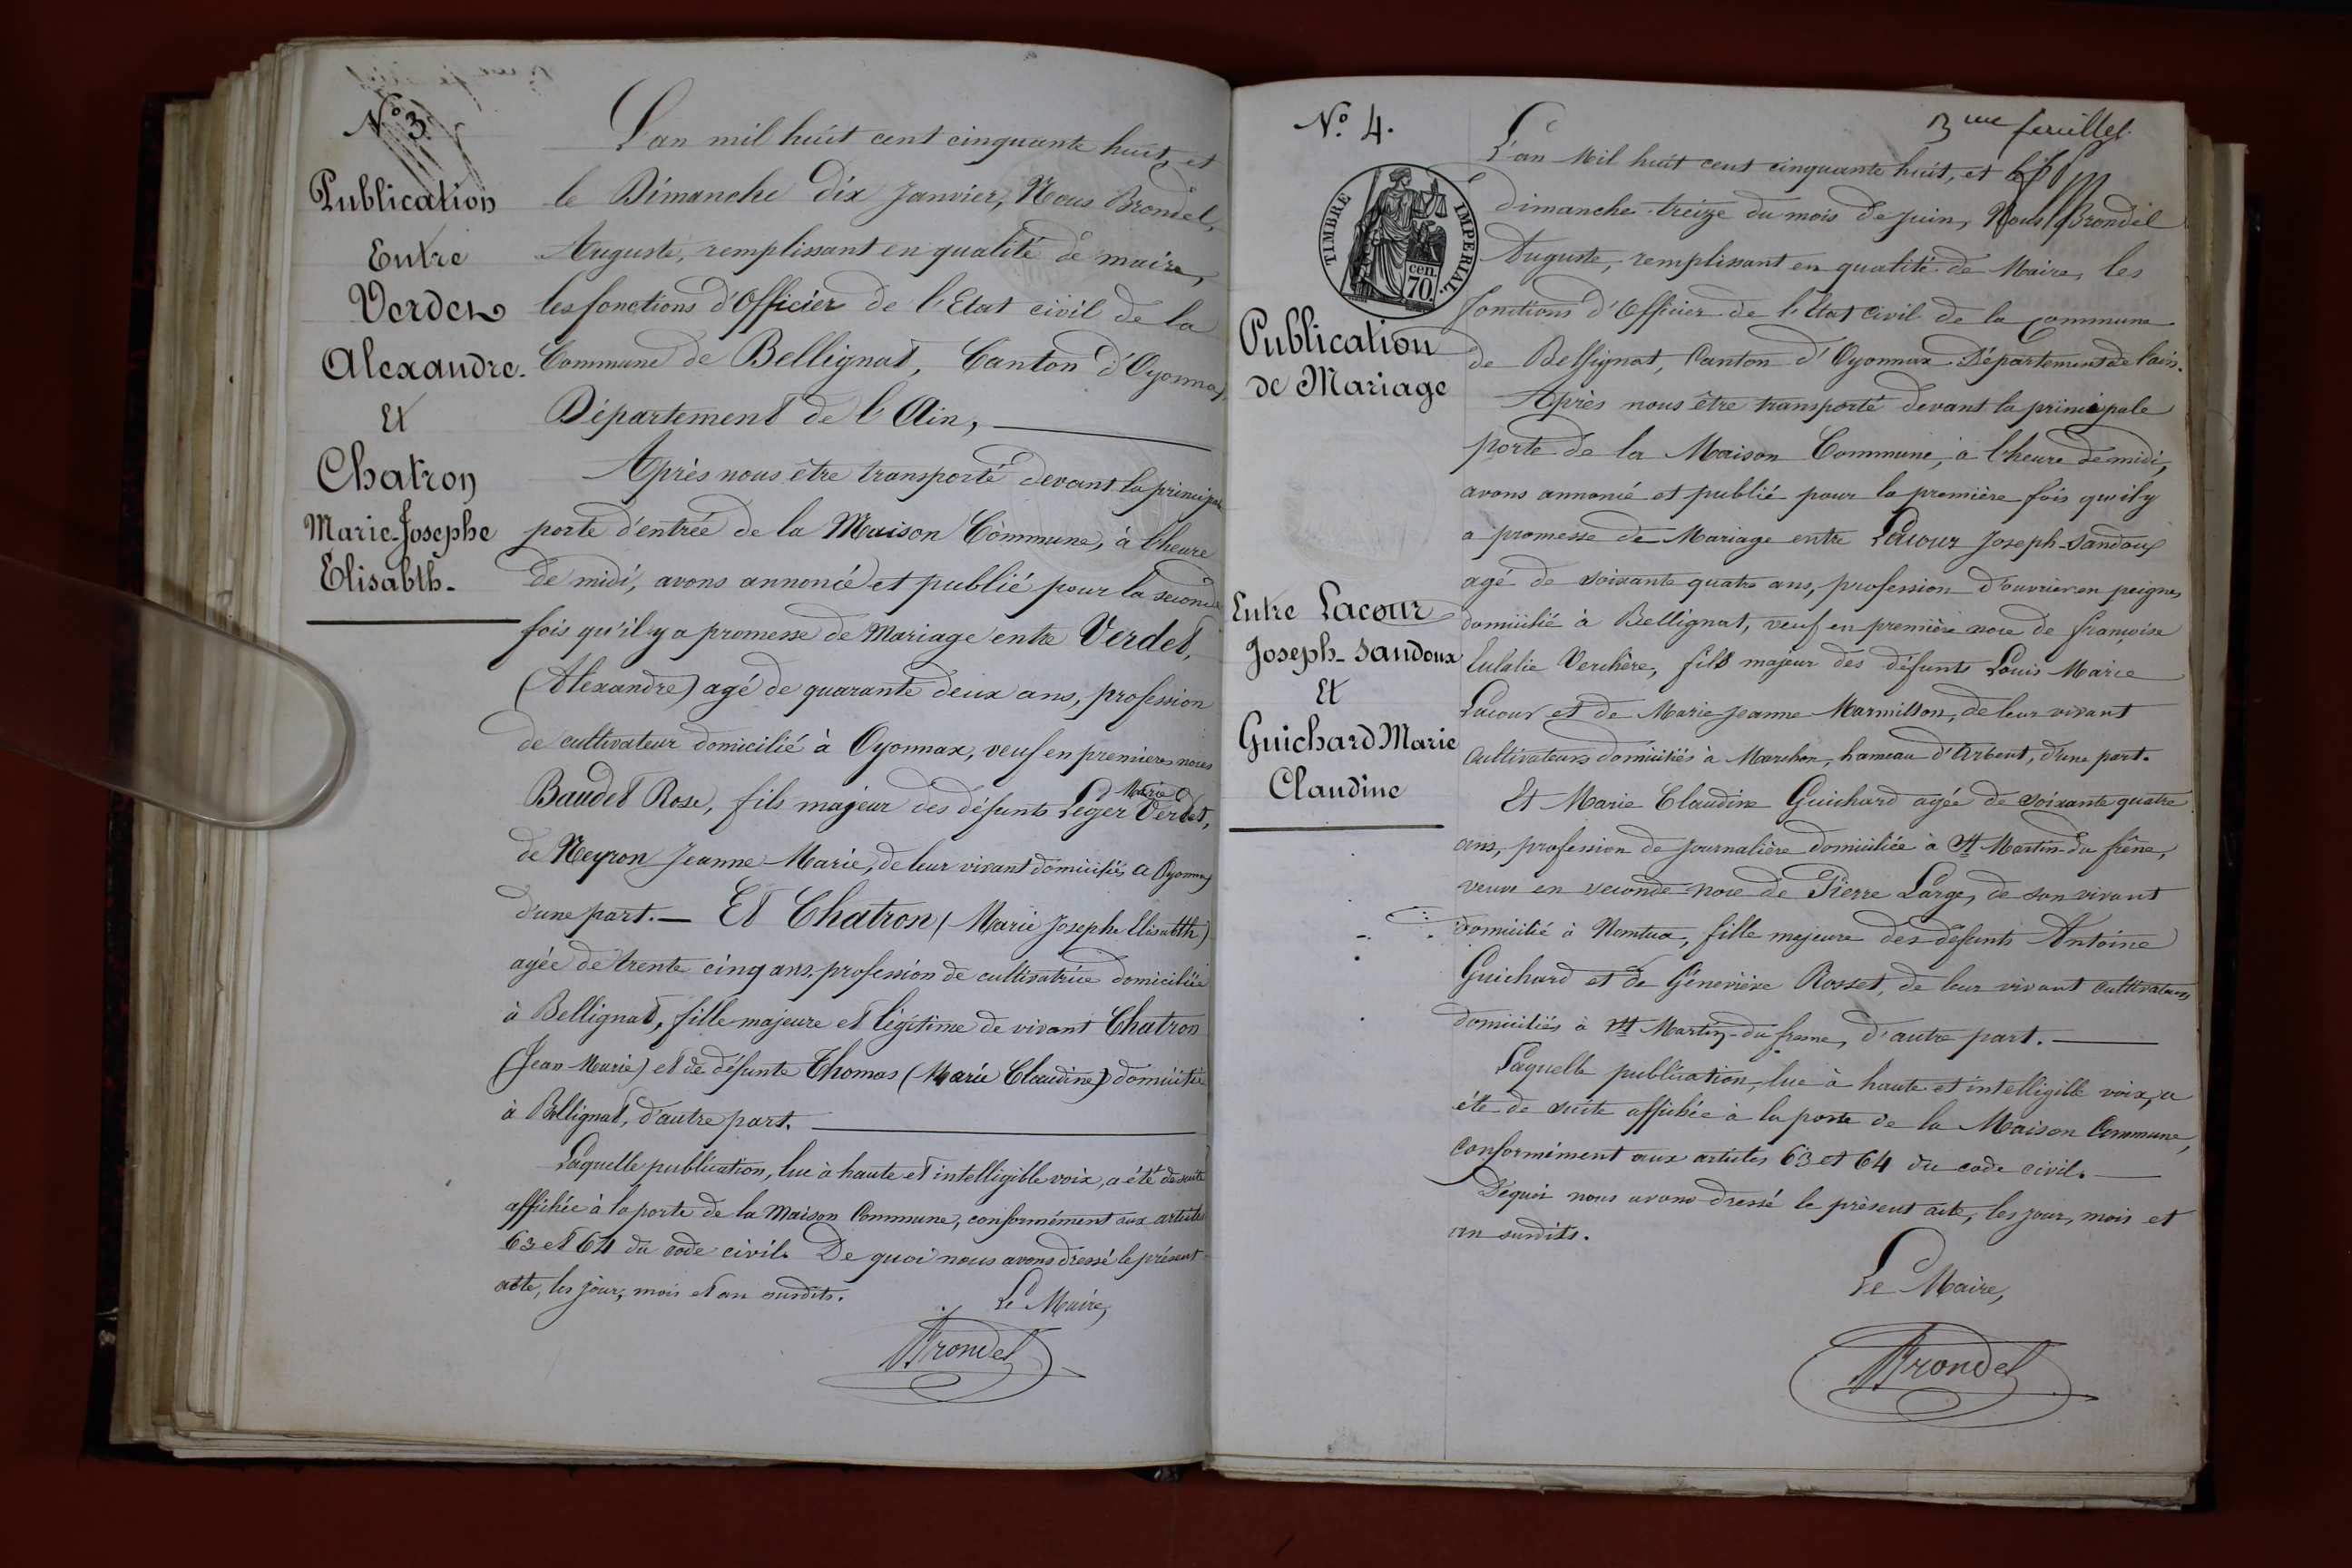 N.° 3.
Publication
Entre
Verdet
Alexandre.
Et
Chatron
Marie-Josephe
Elisabth.
L'an mil huit cent cinquante huit, et
le Dimanche dix Janvier, Nous Brondel,
Auguste, remplissant en qualité de maire,
les fonctions d'Officier de l'Etat civil de la
Commune de Bellignat, Canton d'Oyonnax,
Département de l'Ain,
Après nous être transporté devant la principale
porte d'entrée de la Maison Commune, à l'heure
de midi, avons annoncé et publié pour la seconde
fois qu'il y a promesse de Mariage entre Verdet,
(Alexandre) agé de quarante deux ans, profession
de cultivateur domicilié à Oyonnax, veuf en premières noces
Baudet Rose, fils majeur des défunts Léger Marie Verdet,
de Neyron Jeanne Marie, de leur vivant domiciliés à Oyonnax
d'une part. — Et Chatron (Marie Josephe Elisabth)
agée de trente cinq ans, profession de cultivatrice domiciliée
à Bellignat, fille majeure et légitime de vivant Chatron
(Jean Marie) et de défunte Thomas (Marie Claudine) domicilié
à Bellignat, d'autre part.
Laquelle publication, lue à haute et intelligible voix, a été de suite
affichée à la porte de la Maison Commune, conformément aux articles
63 et 64 du code civil. De quoi nous avons dressé le présent
acte, les jour, mois et an susdits.
Le Maire,
Brondel
N.° 4.
3me feuillet
TIMBRE IMPERIAL.
cen.
70
Publication
de Mariage
Entre Lacour
Joseph-Sandoux
Et
Guichard Marie
Claudine
L'an Mil huit cent cinquante huit, et le
dimanche treize du mois de juin, Nous Brondel
Auguste, remplissant en qualité de Maire, les
fonctions d'Officier de l'Etat civil de la commune
de Bellignat, Canton d'Oyonnax Département de l'ain.
Après nous être transporté devant la principale
porte de la Maison Commune, à l'heure de midi,
avons annoncé et publié pour la première fois qu'il y
a promesse de Mariage entre Lacour Joseph-Sandoux
agé de soixante quatre ans, profession d'ouvrier en peignes
domicilié à Bellignat, veuf en première noce de françoise
Eulalie Verchère, fils majeur des défunts Louis Marie
Lacour et de Marie Jeanne Marmillon, de leur vivant
cultivateurs domiciliés à Marchon, hameau d'Arbent, d'une part.
Et Marie Claudine Guichard agée de soixante quatre
ans, profession de journalière domiciliée à St Martin-du frêne,
veuve en seconde noce de Pierre Large, de son vivant
domicilié à Nantua, fille majeure des défunts Antoine
Guichard et de Géneviève Rosset, de leur vivant cultivateurs
domiciliés à St Martin-du fresne, d'autre part.
Laquelle publication, lue à haute et intelligible voix, a
été de suite affichée à la porte de la Maison Commune,
conformément aux articles 63 et 64 du code civil.
Dequoi nous avons dressé le présent acte, les jour, mois et
an susdits.
Le Maire,
Brondel